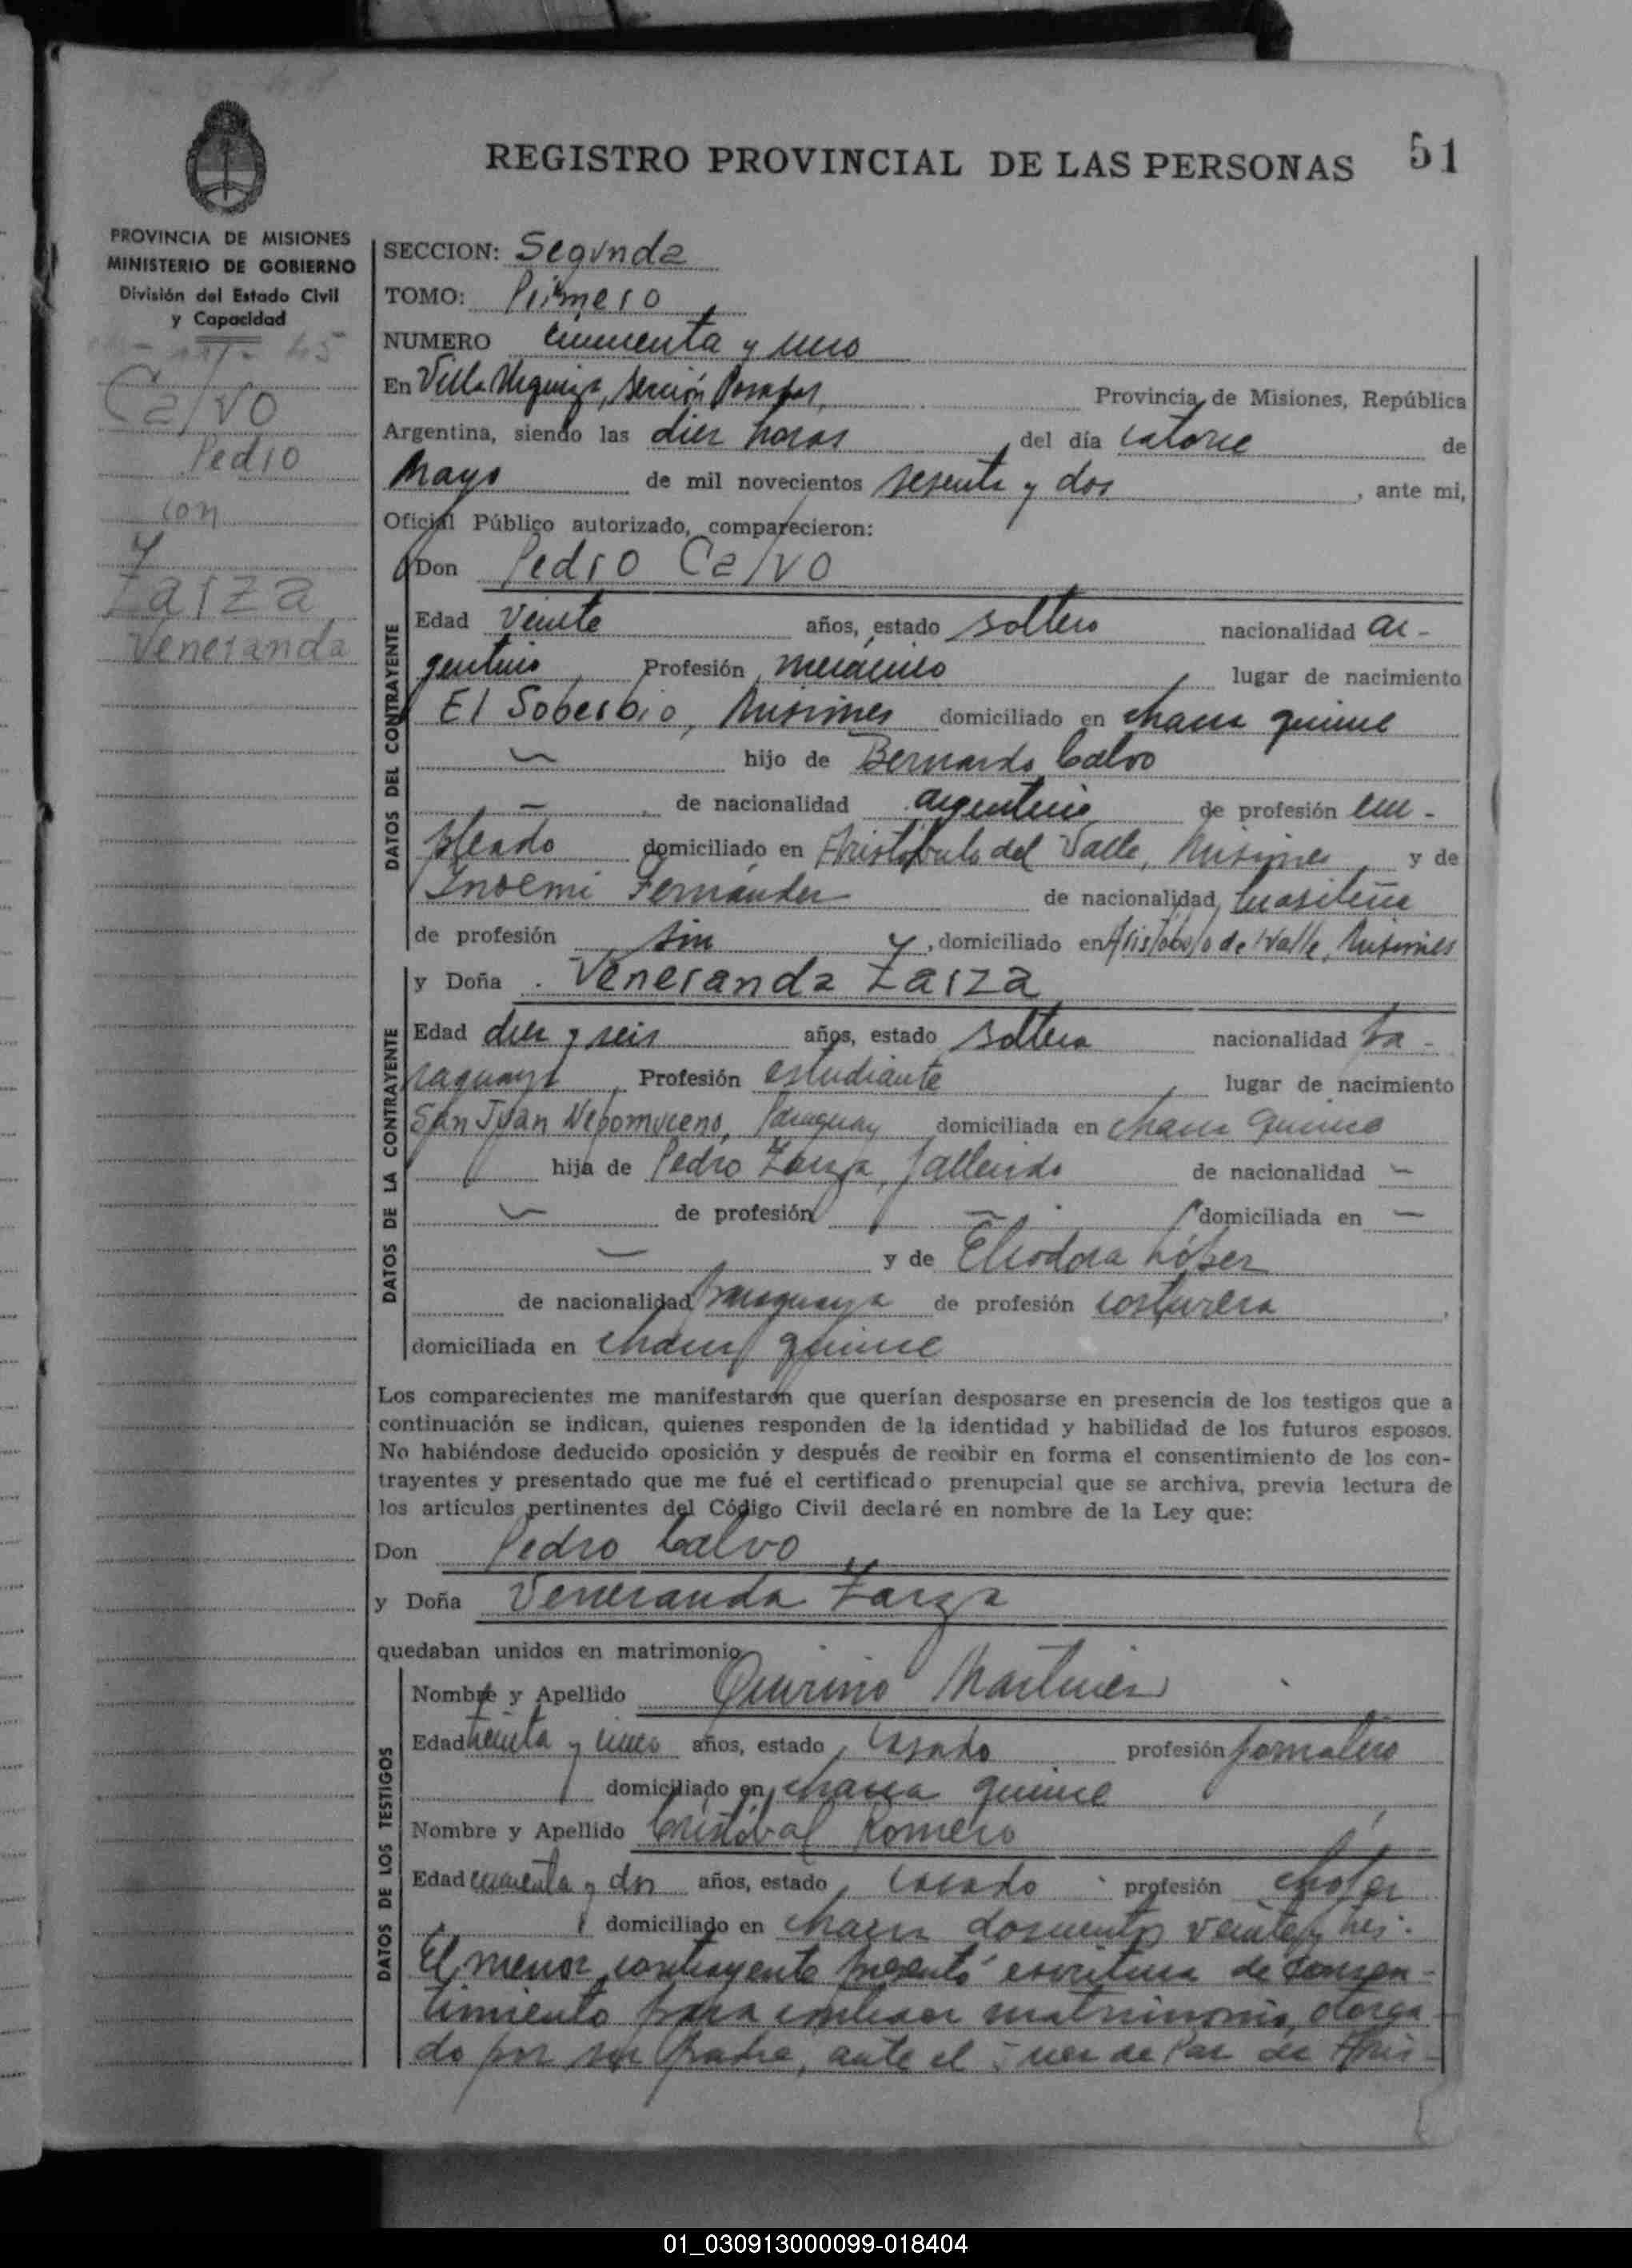 REGISTRO PROVINCIAL DE LAS PERSONAS 51
PROVINCIA DE MISIONES
MINISTERIO DE GOBIERNO
División del Estado Civil
y Capacidad
Calvo
Pedro
con
Zarza
Veneranda
SECCION: Segunda
TOMO: Primero
NUMERO cincuenta y uno
En Villa Urquiza, Sección Posadas, Provincia de Misiones, República
Argentina, siendo las diez horas, del día catorce de
Mayo de mil novecientos sesenta y dos, ante mi,
Oficial Público autorizado, comparecieron:
DATOS DEL CONTRAYENTE
Don Pedro Calvo
Edad veinte años, estado soltero nacionalidad ar-
gentino, Profesión mecánico, lugar de nacimiento
El Soberbio, Misiones domiciliado en chacra quince
— hijo de Bernardo Calvo
—, de nacionalidad argentino de profesión em-
pleado domiciliado en Aristóbulo del Valle, Misiones y de
Inoemi Fernández de nacionalidad brasileña
de profesión sin, domiciliado en Aristobulo del Valle, Misiones
DATOS DE LA CONTRAYENTE
y Doña Veneranda Zarza
Edad diez y seis años, estado soltera nacionalidad pa-
raguaya, Profesión estudiante, lugar de nacimiento
San Juan Nepomuceno, Paraguay domiciliada en chacra quince
hija de Pedro Zarza, fallecido de nacionalidad —
— de profesión —, domiciliada en —
— y de Eliodora López
de nacionalidad paraguaya de profesión costurera,
domiciliada en chacra quince
Los comparecientes me manifestaron que querían desposarse en presencia de los testigos que a
continuación se indican, quienes responden de la identidad y habilidad de los futuros esposos.
No habiéndose deducido oposición y después de recibir en forma el consentimiento de los con-
trayentes y presentado que me fué el certificado prenupcial que se archiva, previa lectura de
los artículos pertinentes del Código Civil declaré en nombre de la Ley que:
Don Pedro Calvo
y Doña Veneranda Zarza
quedaban unidos en matrimonio
DATOS DE LOS TESTIGOS
Nombre y Apellido Quirino Martinez
Edad treinta y cinco años, estado casado profesión jornalero
domiciliado en chacra quince
Nombre y Apellido Cristóbal Romero
Edad cuarenta y dos años, estado casado profesión chofer
domiciliado en chacra doscientos veinte y tres.
El menor contrayente presentó escritura de consen-
timiento para contraer matrimonio, otorga-
do por su padre, ante el Juez de Paz de Aris-
01_030913000099-018404